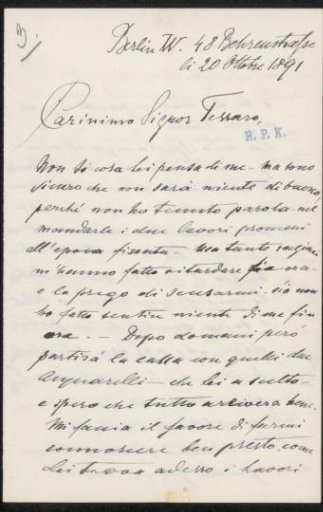 Berlin W. 48 Behrenstrasse
li 20 Ottobre 1891
Carissimo Signor Ferraro,
R. P. K.
Non so cosa Lei pensa di me - ma sono
sicuro che non sarà niente di buono,
perché non ho tenuto parola nel
mandarle i due lavori promessi
all'epoca fissata. - Ma tante ragioni
m'hanno fatto ritardare fin ora
e la prego di scusarmi s'io non
ho fatto sentire niente di me fin
ora. - Dopo domani però
partirà la cassa con quelli due
acquarelli - che lei a scelto -
e spero che tutto arriverà bene.
Mi faccia il favore di farmi
connoscere ben presto, come
Lei trova adesso i lavori